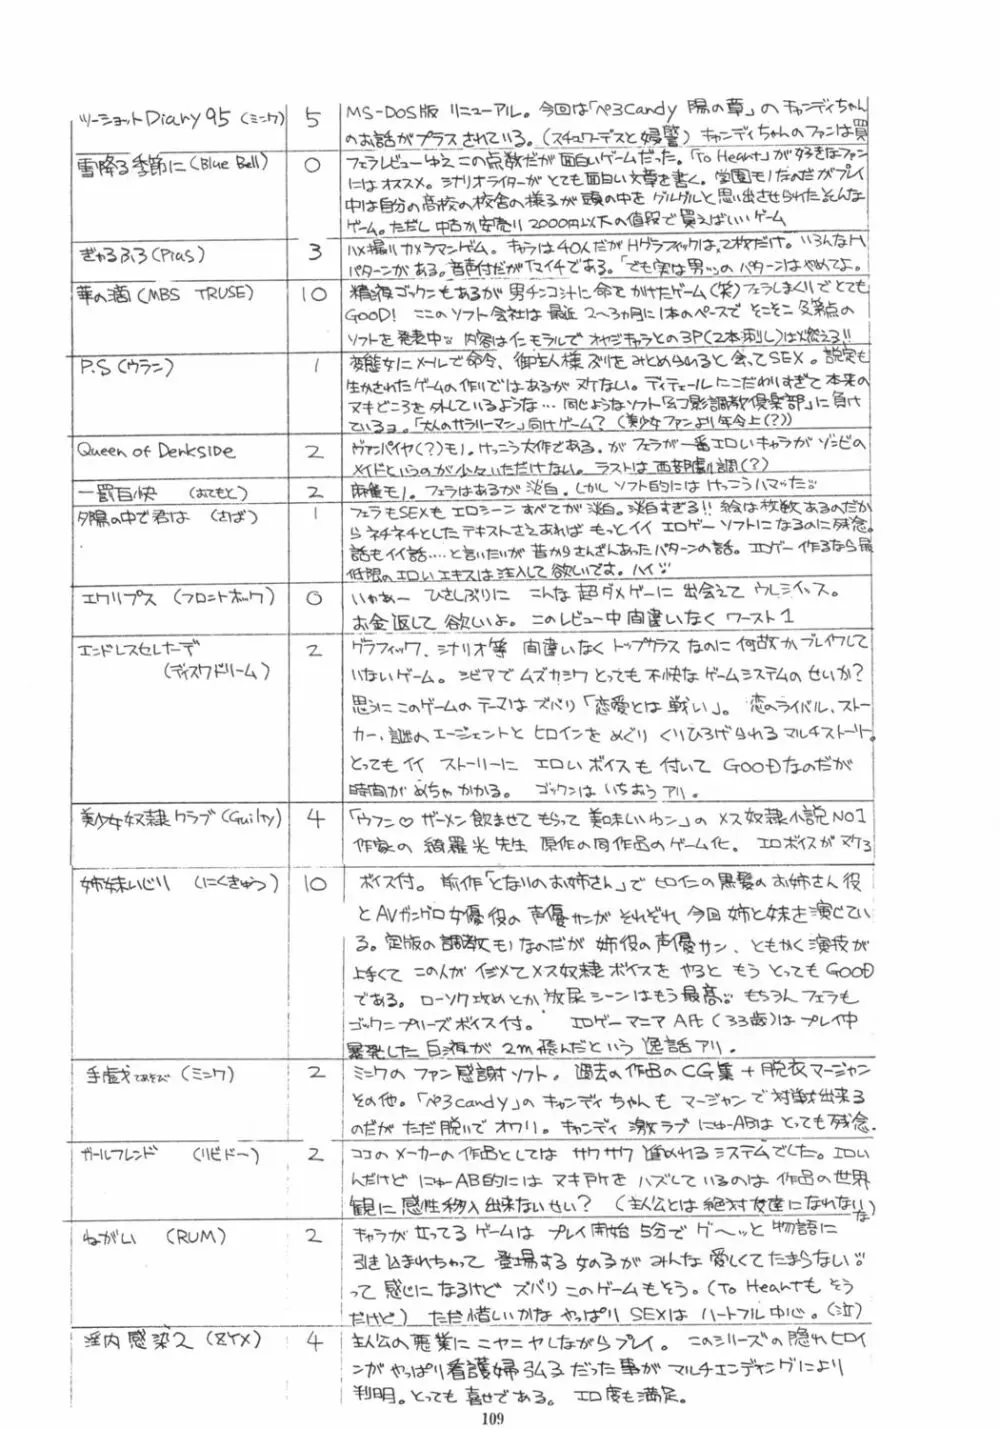 ツーショットDiary95(ミンク) 5 MS-DOS版 リニューアル。今回は「ぺろCandy 陽の章」のキャンディちゃん
のお話がプラスされている。(スチュワーデスと婦警) キャンディちゃんのファンは買
雪降る季節に(Blue Bell) 0 フェラレビューゆえこの点数だが面白いゲームだった。「To Heart」が好きなファン
にはオススメ。シナリオライターがとても面白い文章を書く。学園モノなのだがプレイ
中は自分の高校の校舎の様子が頭の中をグルグルと思い出させられたそんな
ゲーム。ただし中古か安売り2000円以下の値段で買えばいいゲーム
ぎゃるふろ(Pias) 3 ハメ撮りカメラマンゲーム。キャラは40人だがHグラフィックは、2枚だけ。いろんなH
パターンがある。音声付だがイマイチである。「でも実は男」のパターンはやめてよ。
華の滴(MBS TRUSE) 10 精液ゴックンもあるが男チンコ汁に命をかけたゲーム(笑)フェラしまくりでとても
GOOD! ここのソフト会社は最近2〜3ヵ月に1本のペースでそこそこ及第点の
ソフトを発表中。内容はイモラルでオヤジキャラとの3P(2本刺し)は燃える!!
P.S(ウラン) 1 変態女にメールで命令、御主人様ぶりをみとめられると会ってSEX。設定も
生かされたゲームの作りではあるがヌケない。ディテールにこだわりすぎて本来の
ヌキどころを外しているような…同じようなソフト「幻影調教倶楽部」に負け
ているヨ。「大人のサラリーマン」向けゲーム?(美少女ファンより年令上(?))
Queen of Derkside 2 ヴァンパイヤ(?)モノ。けっこう大作である。がフェラが一番エロいキャラがゾンビの
メイドというのが少々いただけない。ラストは西部劇調(?)
一罰百快 (おてもと) 2 麻雀モノ。フェラはあるが淡白。しかしソフト的にはけっこうハマッた
夕陽の中で君は (さば) 1 フェラもSEXもエロシーンすべてが淡白。淡白すぎる!! 絵は枚数あるのだか
らネチネチとしたテキストさえあればもっとイイエロゲーソフトになるのに残念。
話もイイ話‥‥と言いたいが昔からさんざんあったパターンの話。エロゲー作るなら最
低限のエロいエキスは注入して欲しいです。ハイ
エクリプス (フロントホック) 0 いやあー ひさしぶりに こんな超ダメゲーに出会えてウレシイッス。
お金返して欲しいよ。このレビュー中間違いなくワースト1
エンドレスセレナーデ
(ディスクドリーム) 2 グラフィック、シナリオ等 間違いなくトップクラスなのに何故かブレイクして
いないゲーム。シビアでムズカシクとっても不快なゲームシステムのせいか?
思うにこのゲームのテーマはズバリ「恋愛とは戦い」。恋のライバル、ストー
カー、謎のエージェントとヒロインをめぐりくりひろげられるマルチストーリー。
とってもイイストーリーにエロいボイスも付いてGOODなのだが
時間がめちゃかかる。ゴックンはいちおうアリ。
美少女奴隷クラブ(Guilty) 4 「ウフン♡ザーメン飲ませてもらって美味しいわン」のメス奴隷小説NO1
作家の綺羅光先生原作の同作品のゲーム化。エロボイスがマケる
姉妹いじり(にくきゅう) 10 ボイス付。前作「となりのお姉さん」でヒロインの黒髪のお姉さん役
とAVガングロ女優役の声優サンがそれぞれ今回姉と妹を演じてい
る。定版の調教モノなのだが姉役の声優サン、ともかく演技が
上手くてこの人がイジメてメス奴隷ボイスをやるともうとってもGOOD
である。ローソク攻めとか放尿シーンはもう最高 もちろんフェラも
ゴックンプリーズボイス付。エロゲーマニアAft(33歳)はプレイ中
暴発した白液が2m飛んだという逸話アリ。
手戯 てあそび (ミンク) 2 ミンクのファン感謝ソフト。過去の作品のCG集+脱衣マージャン
その他。「ぺろcandy」のキャンディちゃんもマージャンで対戦出来る
のだがただ脱いでオワリ。キャンディ激ラブにゅーABはとっても残念.
ガールフレンド (リビドー) 2 ココのメーカーの作品としてはサクサク進めれるシステムでした。エロい
んだけどにゅーAB的にはヌキドケをハズしているのは作品の世界
観に感性移入出来ないせい?(主人公とは絶対友達になれないな)
ねがい (RUM) 2 キャラが立ってるゲームはプレイ開始5分でグ〜ッと物語に
引き込まれちゃって登場する女の子がみんな愛しくてたまらない
って感じになるけどズバリこのゲームもそう。(To Heartもそう
だけど) ただ惜しいかなやっぱりSEXはハートフル中心。(泣)
淫内感染2 (ZYX) 4 主人公の悪業にニヤニヤしながらプレイ。このシリーズの隠れヒロイ
ンがやっぱり看護婦弘子だった事がマルチエンディングにより
判明。とっても喜せである。エロ度も満足。
109